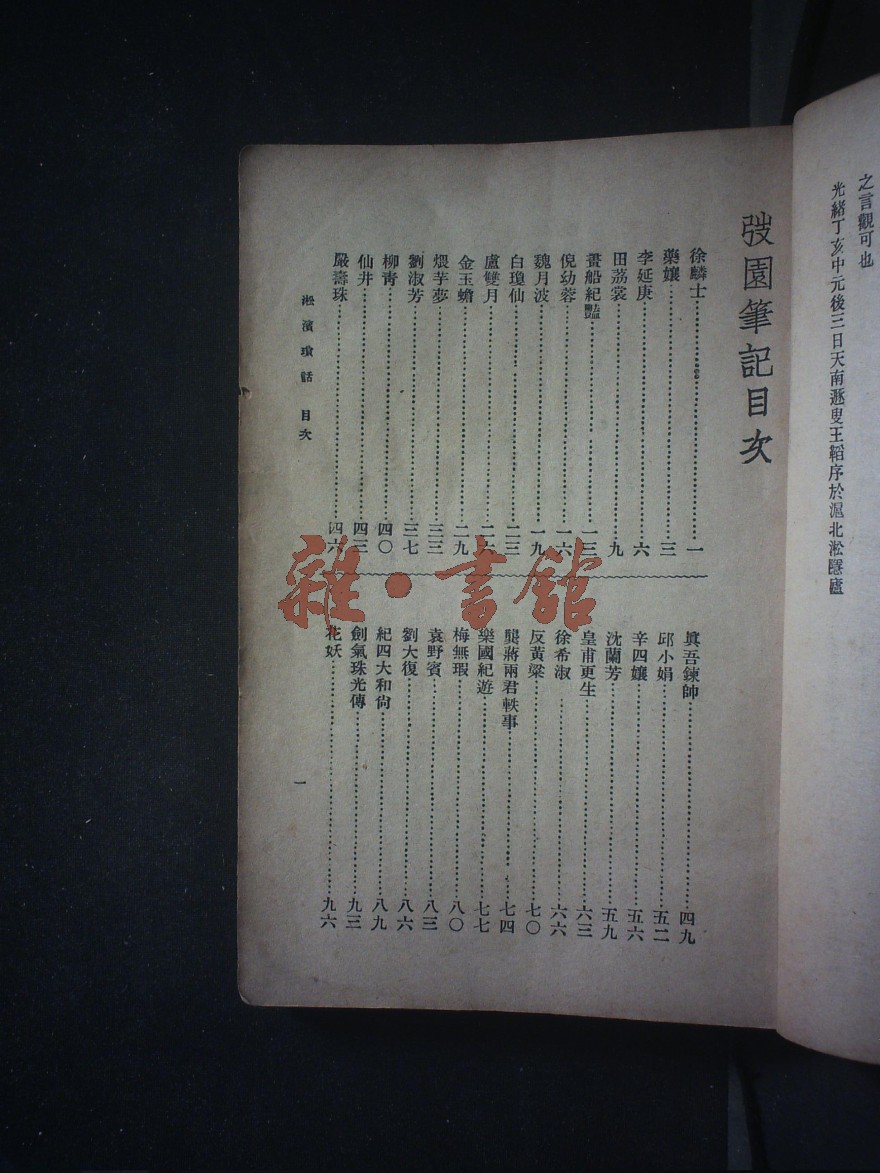 之言觀可也
光緒丁亥中元後三日天南遯叟王韜序於滬北淞隱廬
弢園筆記目次
徐麟士 一
藥孃 三
李延庚 六
田荔裳 九
畫船紀豔 一三
倪幼蓉 一六
魏月波 一九
白瓊仙 二三
盧雙月 二六
金玉蟾 二九
煨芋夢 三三
劉淑芳 三七
柳青 四〇
仙井 四三
嚴壽珠 四六
真吾鍊師 四九
邱小娟 五二
辛四孃 五六
沈蘭芳 五九
皇甫更生 六三
徐希淑 六六
反黃粱 七〇
龔蔣兩君軼事 七四
樂國紀遊 七七
梅無瑕 八〇
袁野賓 八三
劉大復 八六
紀四大和尙 八九
劍氣珠光傳 九三
花妖 九六
淞濱瑣話 目次
一
雜·書館